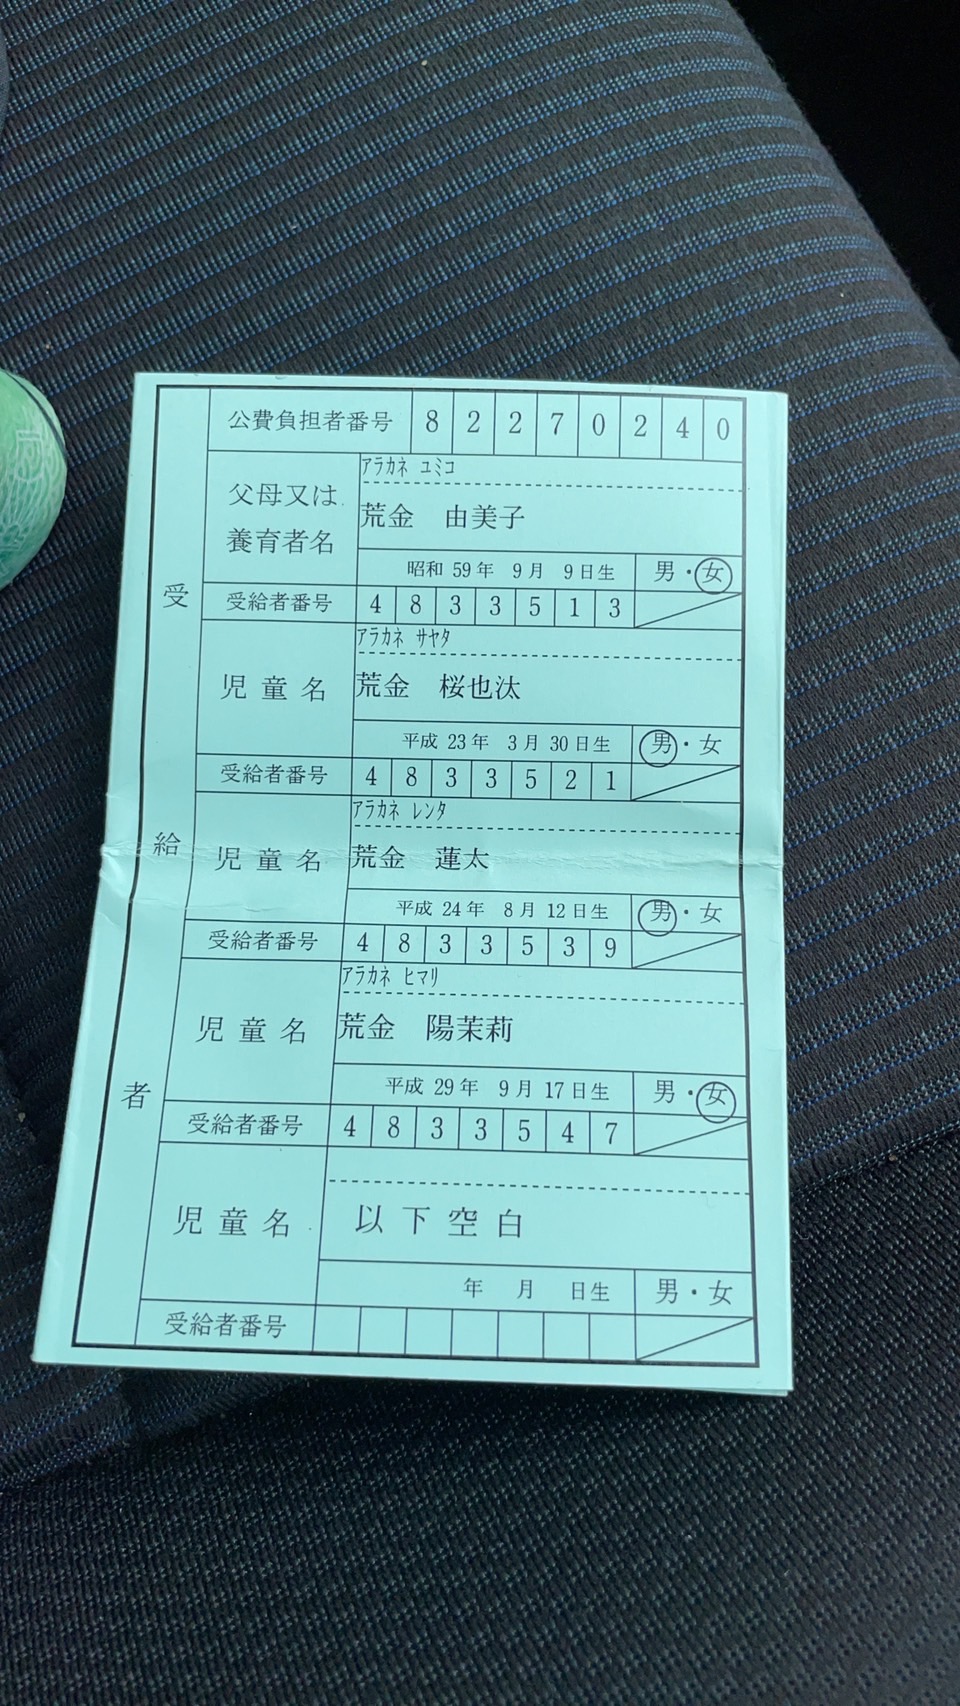 公費負担者番号 8 2 2 7 0 2 4 0
アラカネ ユミコ
父母又は養育者名 荒金 由美子
昭和 59年 9月 9日生 男・女
受給者番号 4 8 3 3 5 1 3
アラカネ サヤタ
児童名 荒金 桜也汰
平成 23年 3月 30日生 男・女
受給者番号 4 8 3 3 5 2 1
アラカネ レンタ
児童名 荒金 蓮太
平成 24年 8月 12日生 男・女
受給者番号 4 8 3 3 5 3 9
アラカネ ヒマリ
児童名 荒金 陽茉莉
平成 29年 9月 17日生 男・女
受給者番号 4 8 3 3 5 4 7
児童名 以下空白
年 月 日生 男・女
受給者番号
受給者